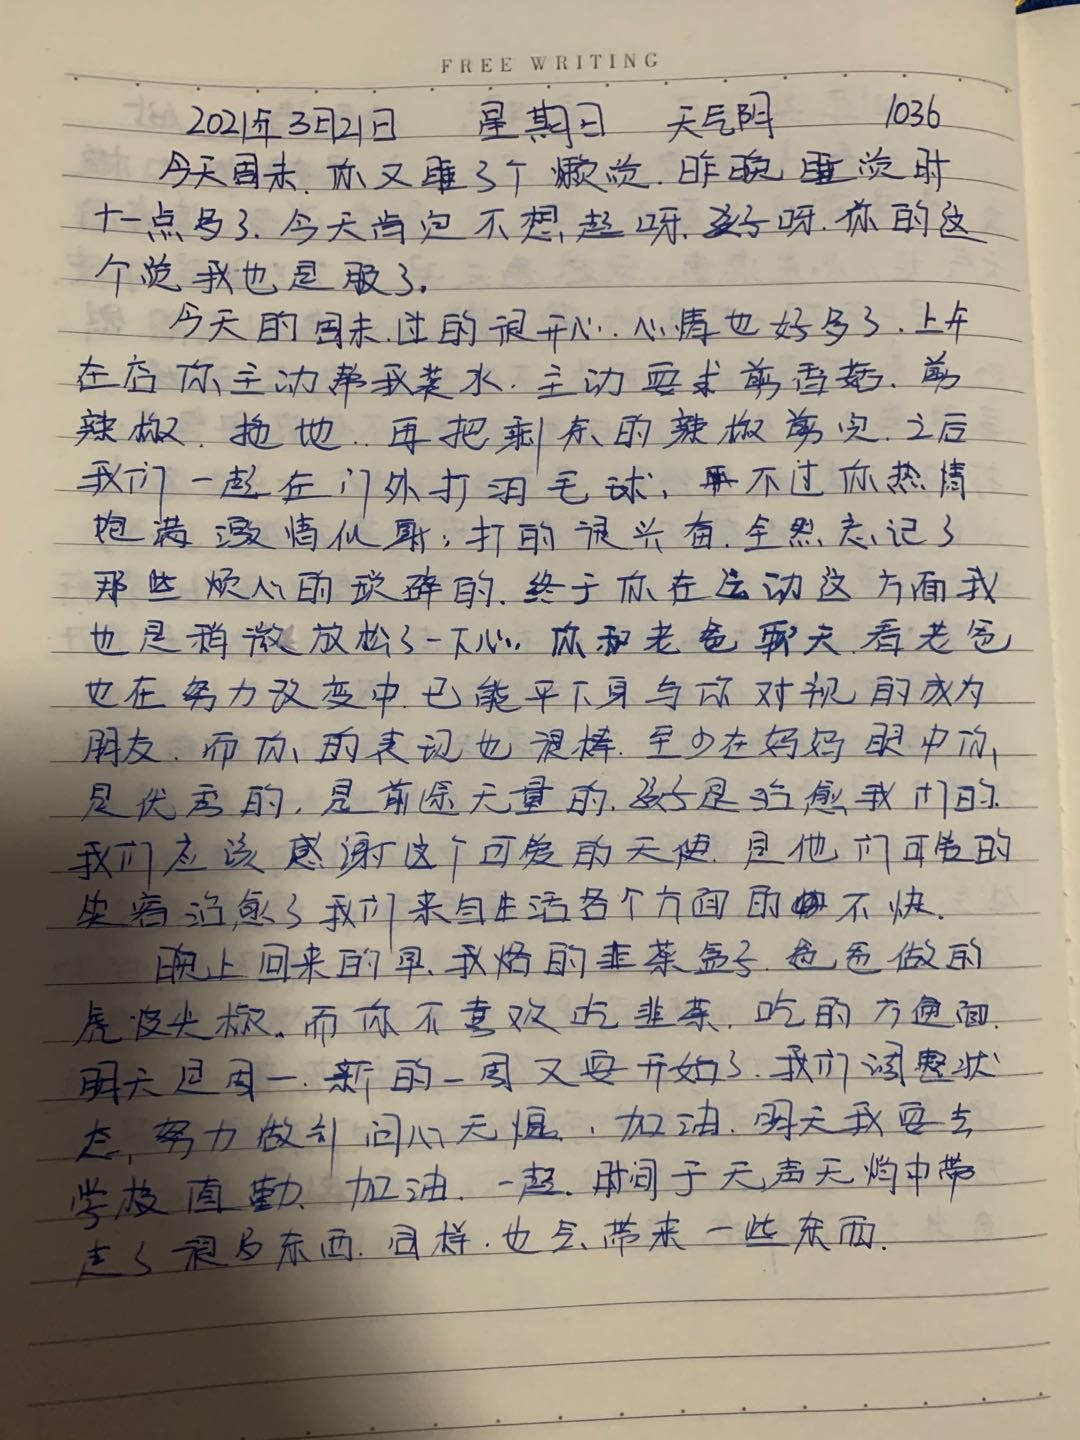 FREE WRITING
2021年3月21日 星期日 天气阴 1036
今天周末.你又睡了个懒觉.昨晚睡觉时
十一点多了.今天肯定不想起呀,孩子呀.你的这
个觉我也是服了.
今天的周末.过的很开心.心情也好多了.上午
在店你主动帮我装水.主动要求剪香菇.剪
辣椒.拖地..再把剩余的辣椒剪完.之后
我们一起在门外打羽毛球,再不过你热情
饱满激情似射,打的很兴奋.全然忘记了
那些烦心的琐碎的.终于你在运动这方面我
也是稍微放松了一下心.你和老爸聊天.看老爸
也在努力改变中.已能平下身与你对视的成为
朋友.而你的表现也很棒.至少在妈妈眼中你
是优秀的.是前途无量的.孩子是治愈我们的.
我们应该感谢这个可爱的天使.是他们可爱的
笑容治愈了我们来自生活各个方面的不快.
晚上回来的早.我烙的韭菜盒子.爸爸做的
虎皮尖椒.而你不喜欢吃韭菜.吃的方便面.
明天是周一.新的一周又要开始了.我们调整状
态,努力做到问心无愧.加油.明天我要去
学校值勤.加油.一起.时间于无声无灼中带
走了很多东西.同样.也会带来一些东西.